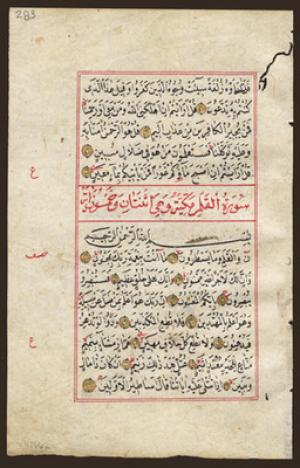 283
فلما رأوه زلفة سيئت وجوه الذين كفروا وقيل هذا الذي
كنتم به تدعون قل أرأيتم إن أهلكني الله ومن معي أو رحمنا
فمن يجير الكافرين من عذاب أليم قل هو الرحمن آمنا به
وعليه توكلنا فستعلمون من هو في ضلال مبين
ع
قل أرأيتم إن أصبح ماؤكم غورا فمن يأتيكم بماء معين
سورة القلم مكية وهي اثنتان وخمسون آية
بسم الله الرحمن الرحيم
نصف
ن والقلم وما يسطرون ما أنت بنعمة ربك بمجنون
وإن لك لأجرا غير ممنون وإنك لعلى خلق عظيم فستبصر و
يبصرون بأيكم المفتون إن ربك هو أعلم بمن ضل عن سبيله
وهو أعلم بالمهتدين فلا تطع المكذبين ودوا لو تدهن
فيدهنون ولا تطع كل حلاف مهين هماز مشاء بنميم
ع
مناع للخير معتد أثيم عتل بعد ذلك زنيم أن كان ذا مال
وبنين إذا تتلى عليه آياتنا قال أساطير الأولين